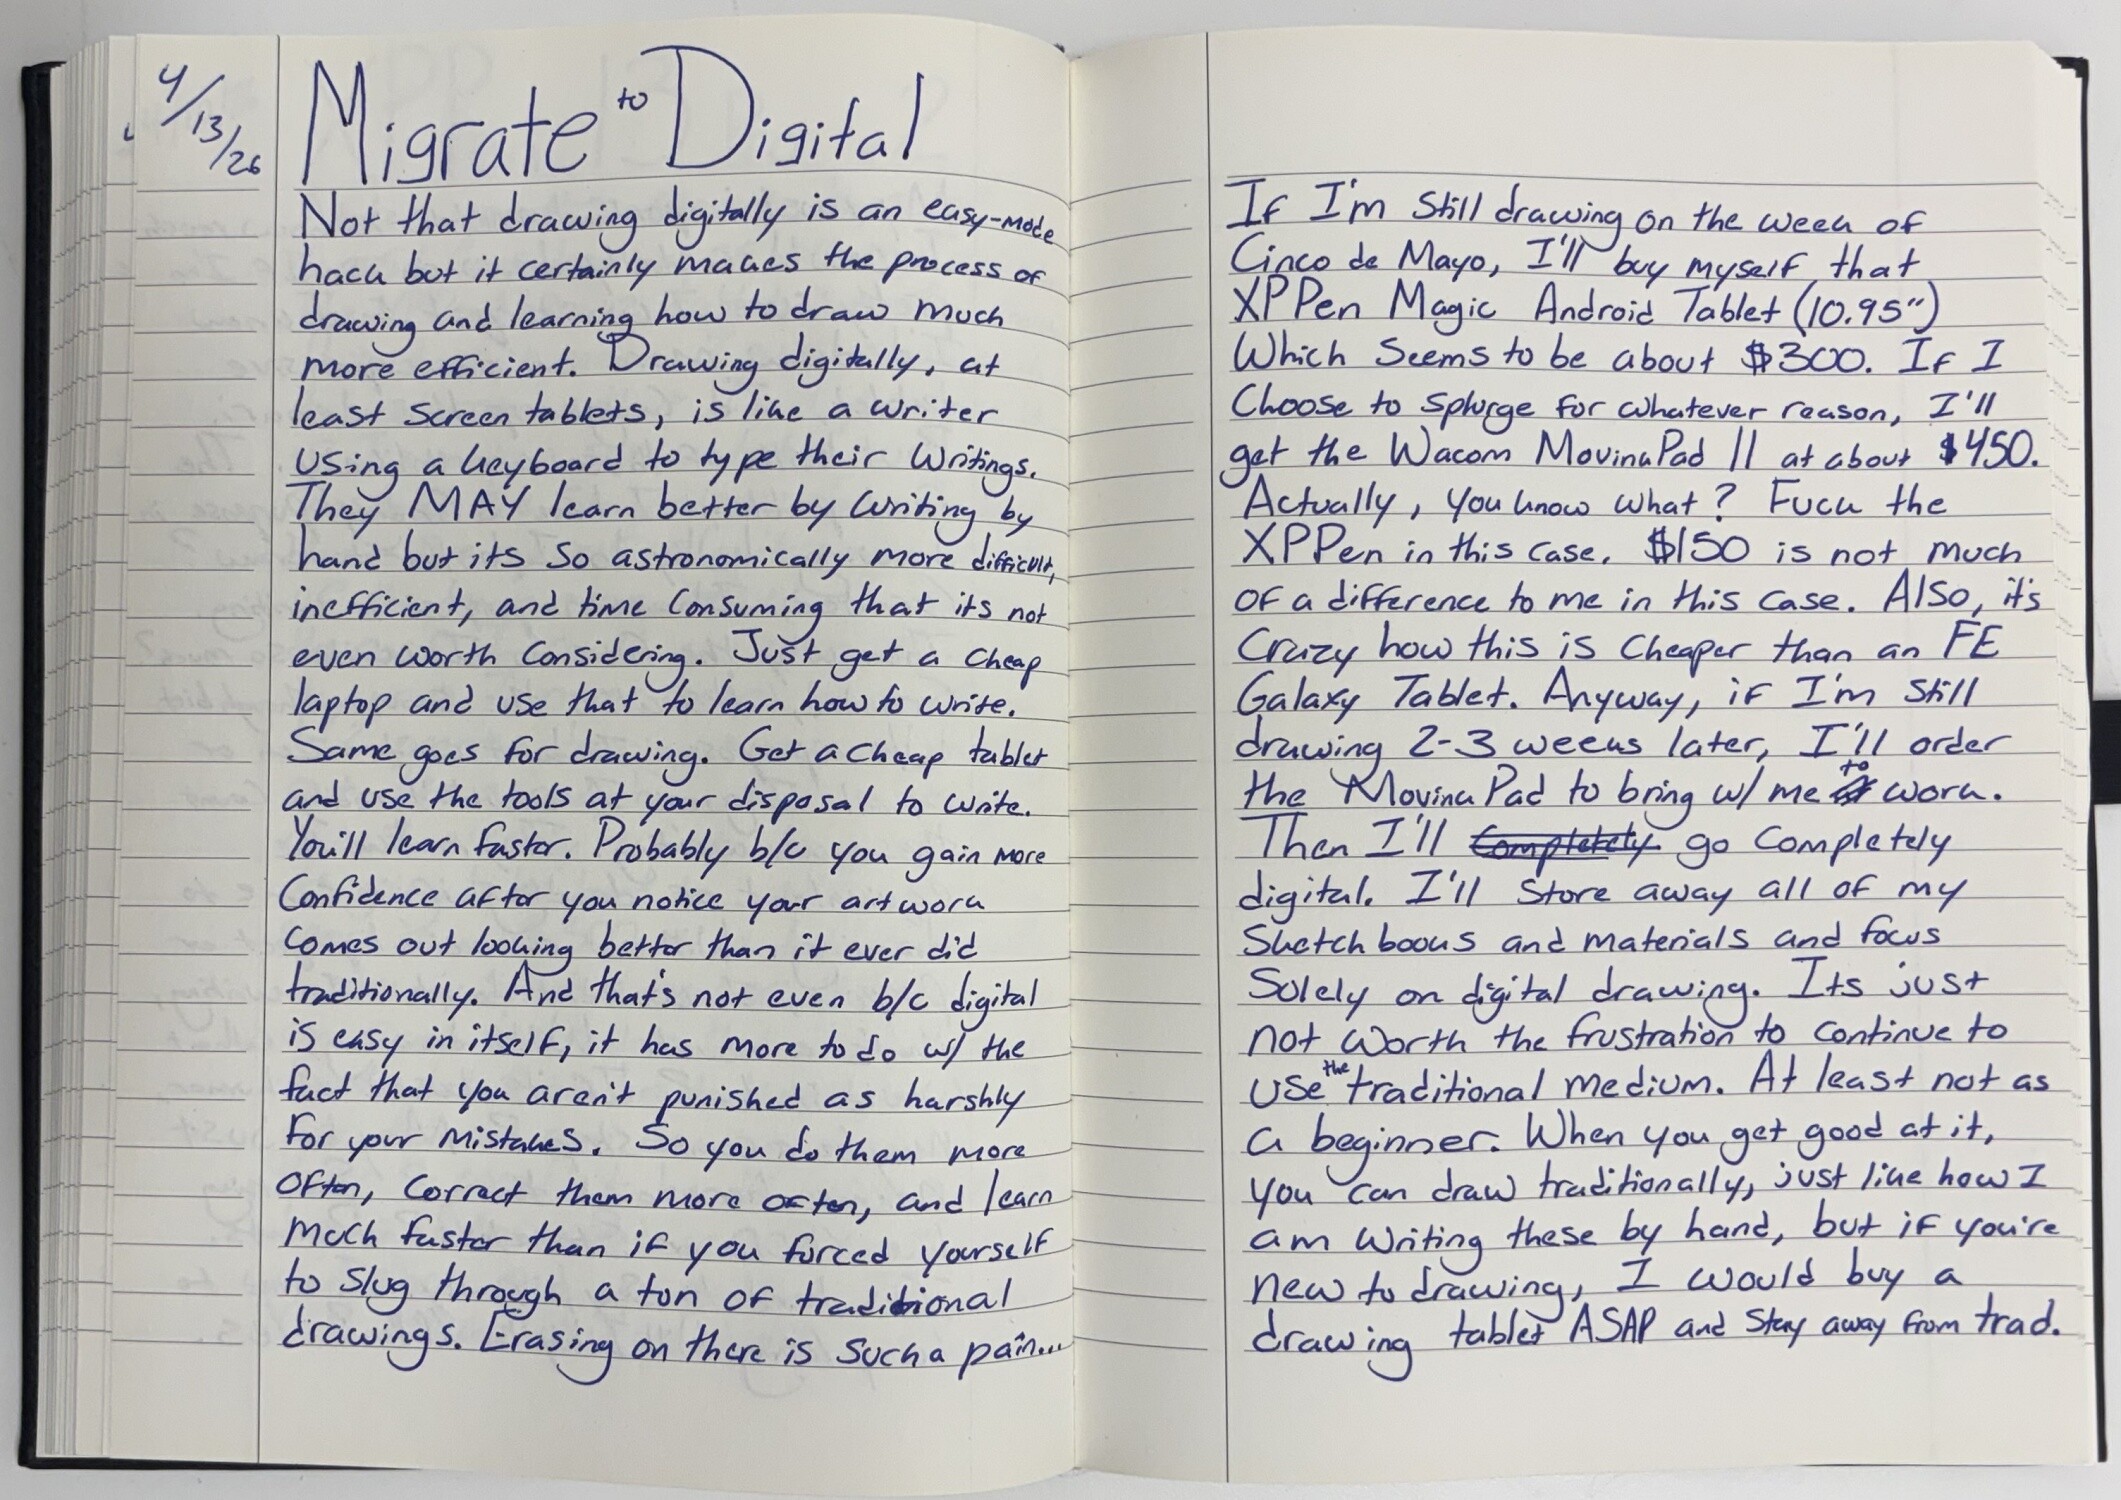 4/13/26
Migrate to Digital
Not that drawing digitally is an easy-mode
hack but it certainly makes the process of
drawing and learning how to draw much
more efficient. Drawing digitally, at
least screen tablets, is like a writer
using a keyboard to type their writings.
They MAY learn better by writing by
hand but its so astronomically more difficult,
inefficient, and time consuming that its not
even worth considering. Just get a cheap
laptop and use that to learn how to write.
Same goes for drawing. Get a cheap tablet
and use the tools at your disposal to write.
You'll learn faster. Probably b/c you gain more
confidence after you notice your artwork
comes out looking better than it ever did
traditionally. And that's not even b/c digital
is easy in itself, it has more to do w/ the
fact that you aren't punished as harshly
for your mistakes. So you do them more
often, correct them more often, and learn
much faster than if you forced yourself
to slug through a ton of traditional
drawings. Erasing on there is such a pain...
If I'm still drawing on the week of
Cinco de Mayo, I'll buy myself that
XPPen Magic Android Tablet (10.95")
Which seems to be about $300. If I
choose to splurge for whatever reason, I'll
get the Wacom MovinkPad 11 at about $450.
Actually, you know what? Fuck the
XPPen in this case. $150 is not much
of a difference to me in this case. Also, it's
crazy how this is cheaper than an FE
Galaxy Tablet. Anyway, if I'm still
drawing 2-3 weeks later, I'll order
the MovinkPad to bring w/ me to work.
Then I'll completely go completely
digital. I'll store away all of my
sketchbooks and materials and focus
solely on digital drawing. Its just
not worth the frustration to continue to
use the traditional medium. At least not as
a beginner. When you get good at it,
you can draw traditionally, just like how I
am writing these by hand, but if you're
new to drawing, I would buy a
drawing tablet ASAP and stay away from trad.